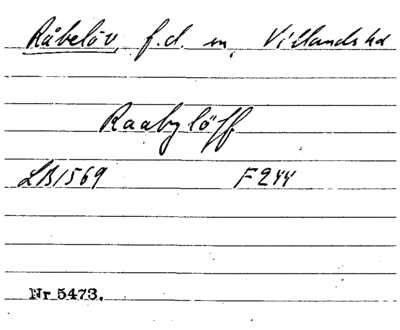 Råbelöv, f.d. sn, Villands hd
Raabylöff
LB1569 F244
Nr 5473.